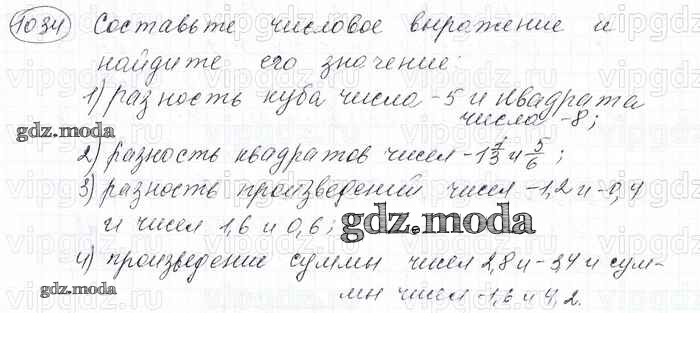 1034 Составьте числовое выражение и
найдите его значение:
1) разность куба числа -5 и квадрата
числа -8;
gdz.moda
2) разность квадратов чисел -1 1/3 и 5/6;
3) разность произведений чисел -1,2 и -0,4
и чисел 1,6 и 0,6;
gdz.moda
4) произведение суммы чисел 2,8 и -3,4 и сум-
gdz.moda
мы чисел -1,6 и 4,2.